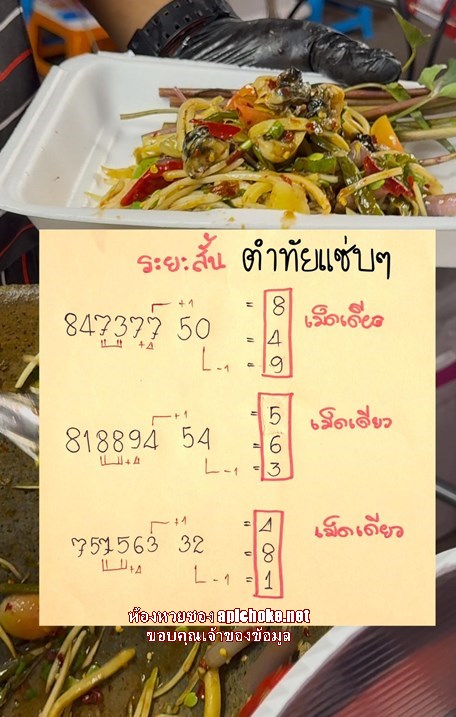 ระยะสั้น ตำทัยแซ่บๆ
+1
847377 50 = 8 เม็ดเดียว
+4 = 4
-1 = 9
+1
818894 54 = 5 เม็ดเดียว
+4 = 6
-1 = 3
+1
757563 32 = 4 เม็ดเดียว
+4 = 8
-1 = 1
ห้องหวยซอง apichoke.net
ขอบคุณเจ้าของข้อมูล